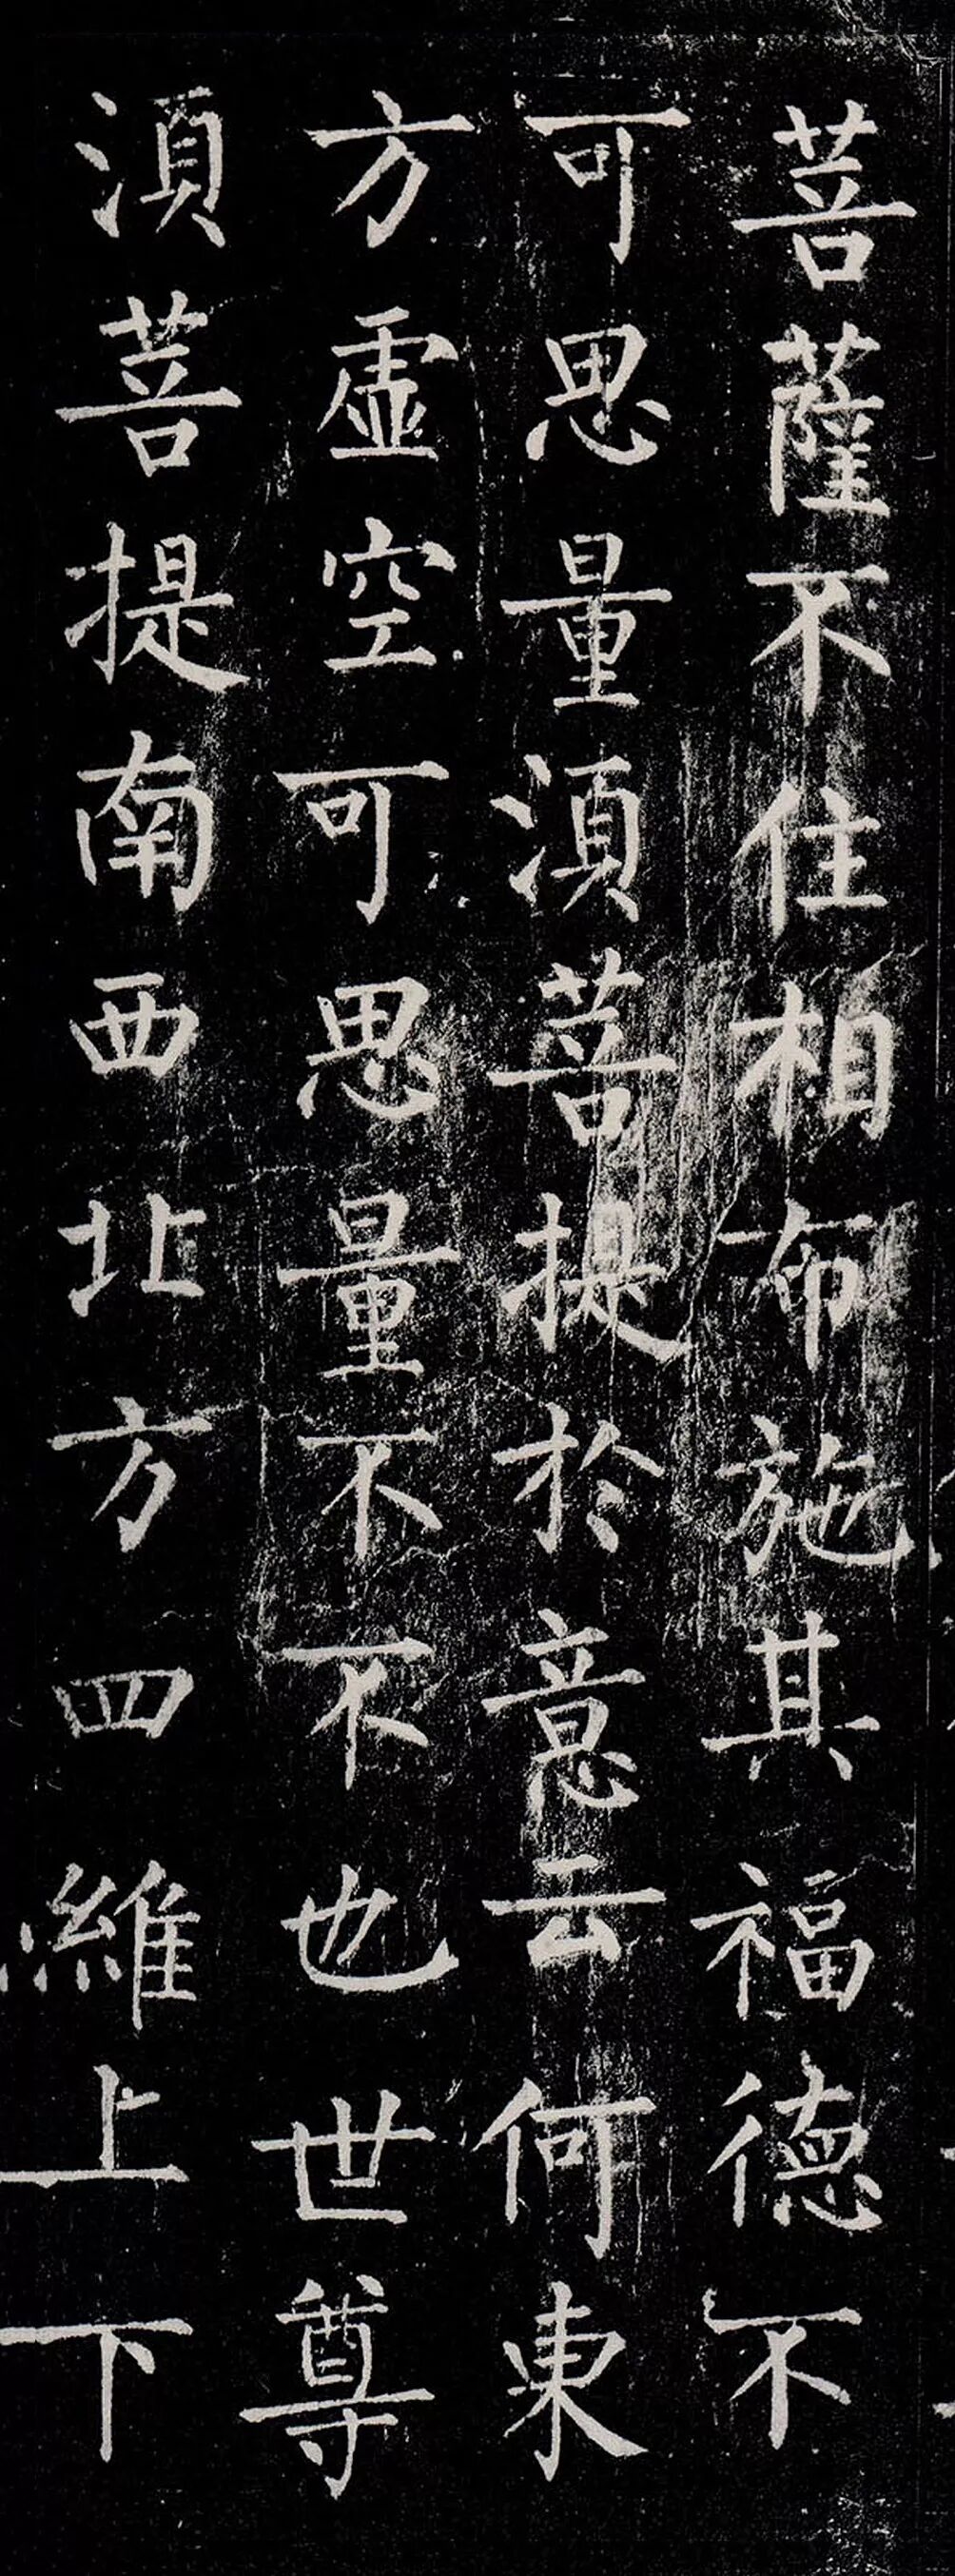 菩薩不住相布施其福德不
可思量湏菩提於意云何東
方虛空可思量不不也世尊
湏菩提南西北方四維上下